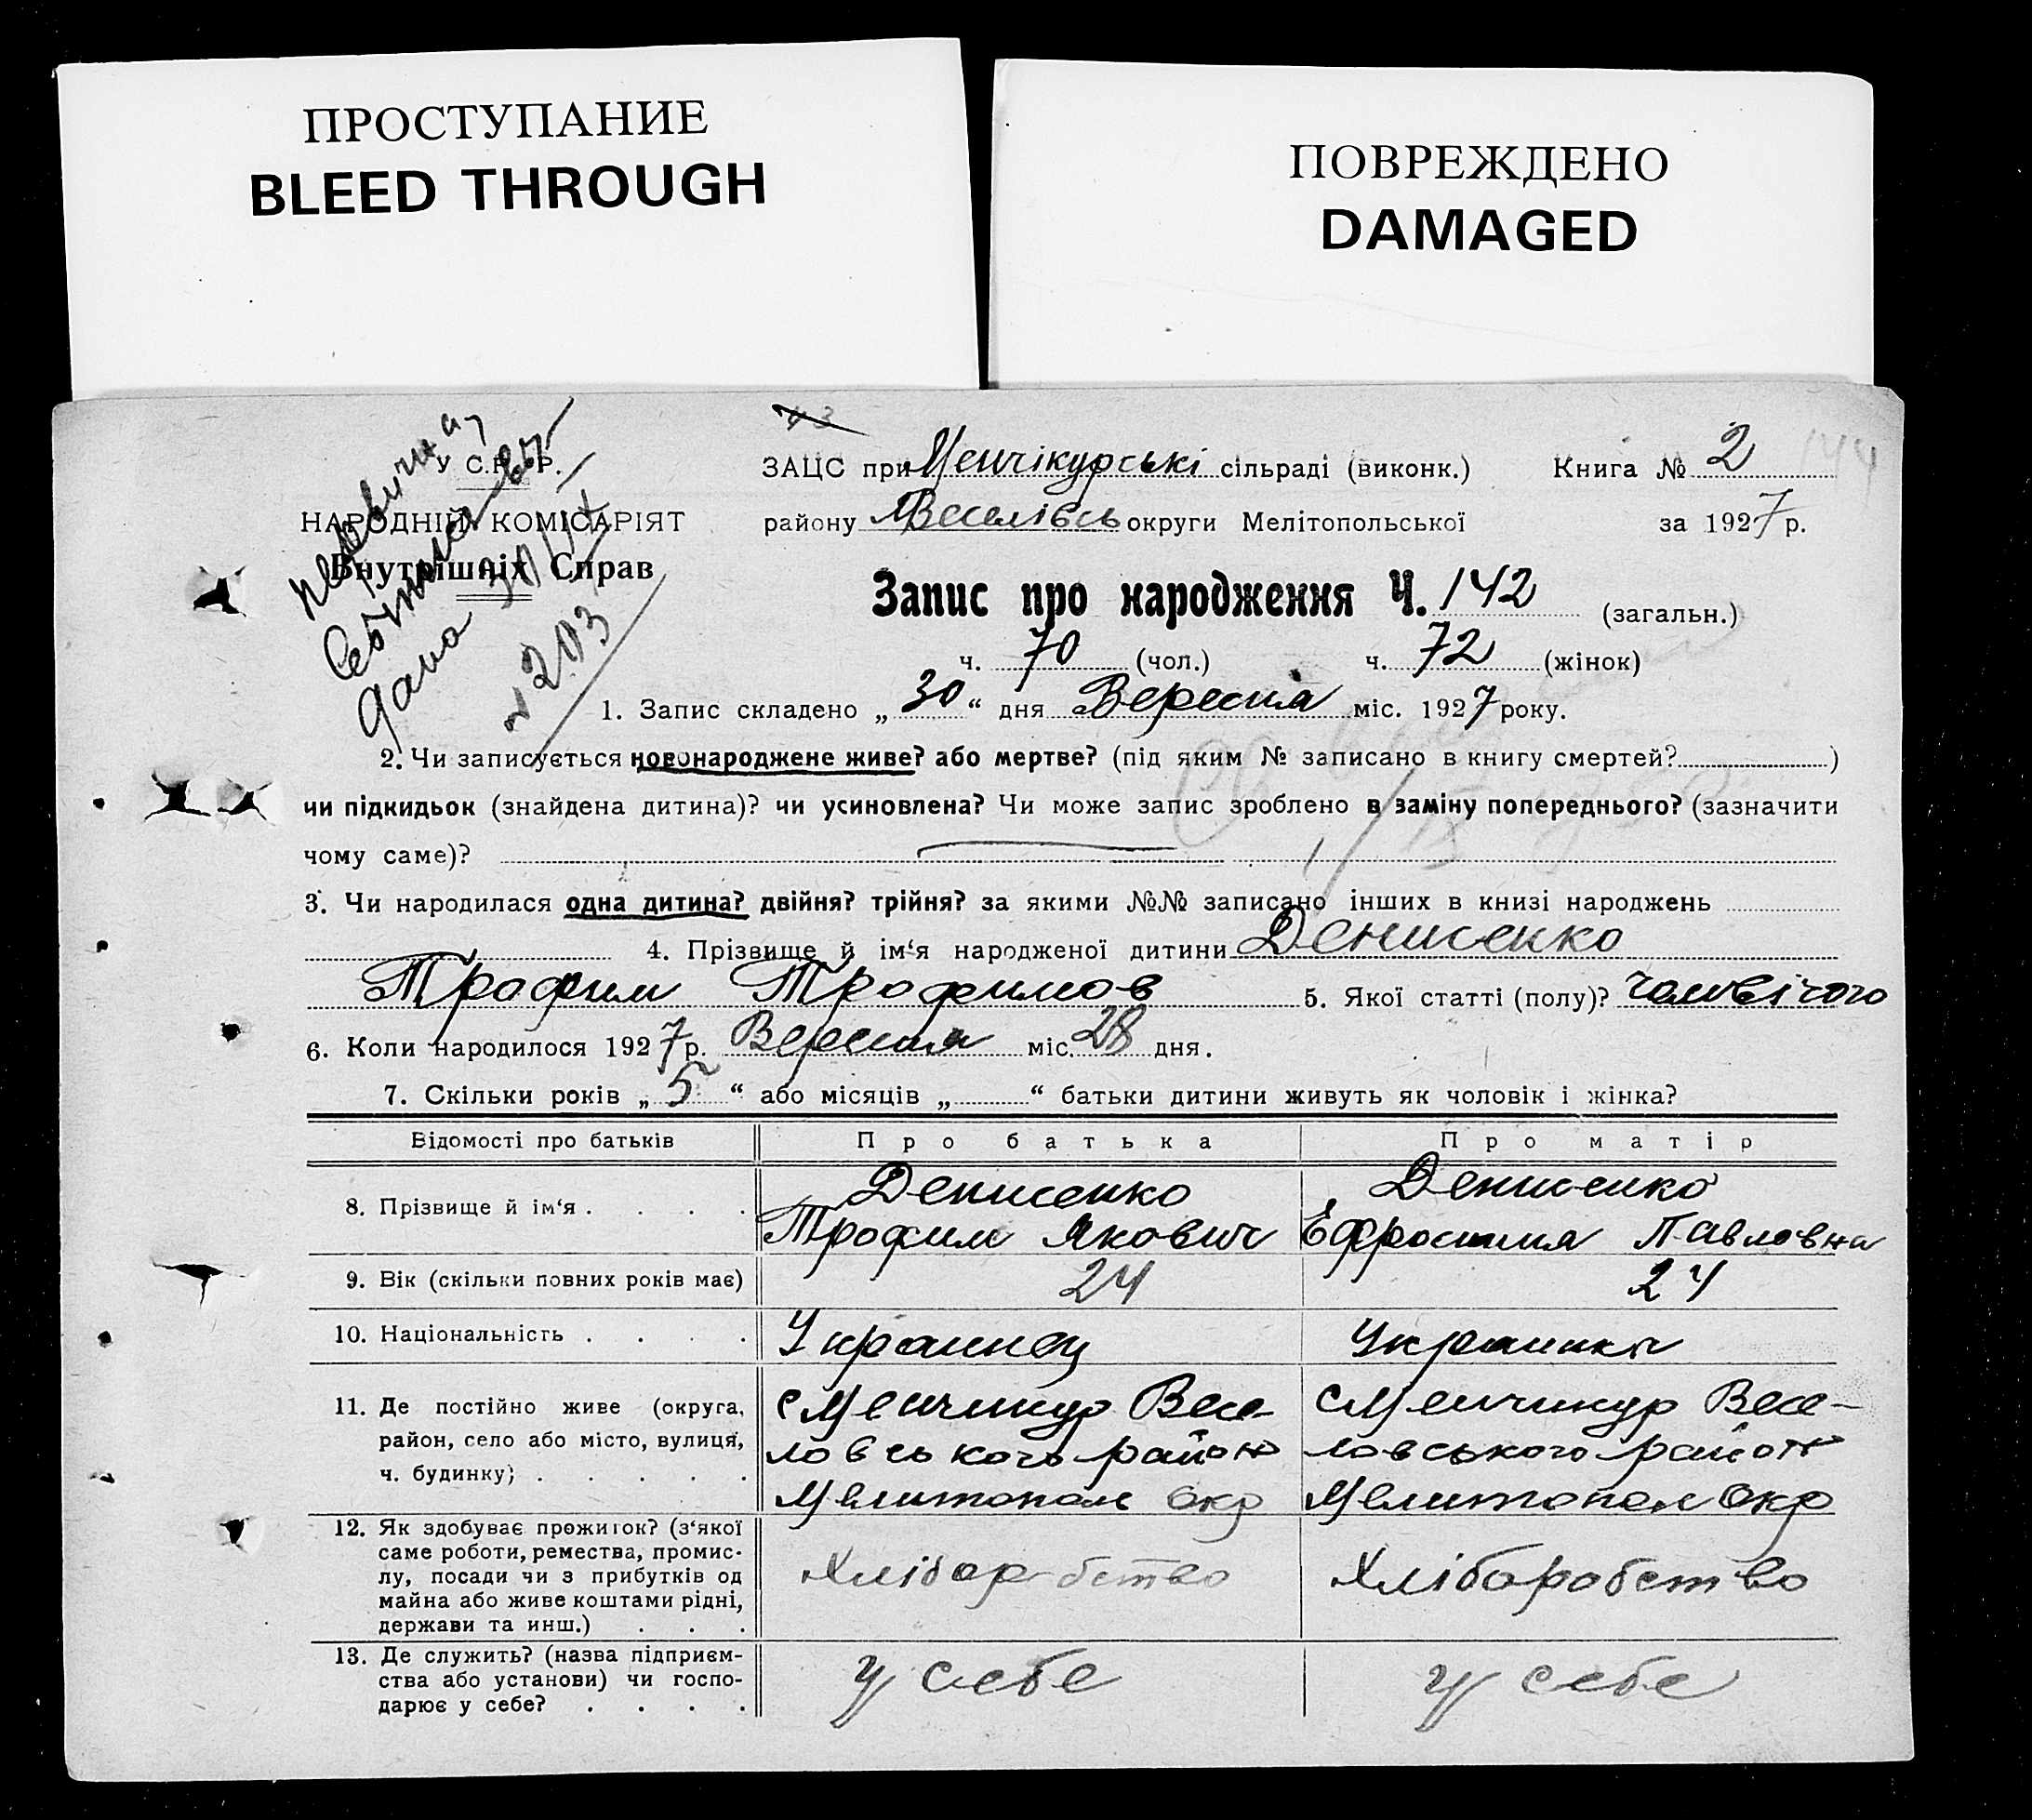 ПРОСТУПАНИЕ
BLEED THROUGH
ПОВРЕЖДЕНО
DAMAGED
43
У С.Р.Р.
НАРОДНІЙ КОМІСАРІЯТ
Внутрішніх Справ
первична
дана 30/IX
№ 203
ЗАЦС при Менчікурські сільраді (виконк.) Книга № 2 144
району Веселівсь округи Мелітопольської за 1927 р.
Запис про народження Ч. 142 (загальн.)
ч. 70 (чол.) ч. 72 (жінок)
1. Запис складено „ 30 “ дня Вересня міс. 1927 року.
2. Чи записується новонароджене живе? або мертве? (під яким № записано в книгу смертей? )
чи підкидьок (знайдена дитина)? чи усиновлена? Чи може запис зроблено в заміну попереднього? (зазначити
чому саме)?
3. Чи народилася одна дитина? двійня? трійня? за якими №№ записано інших в книзі народжень
4. Прізвище й ім‘я народженої дитини Денисенко
Трофим Трофимов 5. Якої статті (полу)? чоловічого
6. Коли народилося 1927 р. Вересня міс. 28 дня.
7. Скільки років „ 5 “ або місяців „ “ батьки дитини живуть як чоловік і жінка?
Відомості про батьків Про батька Про матір
8. Прізвище й ім‘я . . . . Денисенко Денисенко
Трофим Якович Ефросиния Павловна
9. Вік (скільки повних років має) 24 24
10. Національність . . . . Украинец Украинка
11. Де постійно живе (округа, с Менчикур Весе- с Менчикур Весе-
район, село або місто, вулиця, ловського район ловського район
ч. будинку) . . . . . Мелитополь окр Мелитопол окр
12. Як здобуває прожиток? (з‘якої
саме роботи, ремества, промис-
лу, посади чи з прибутків од Хлібор-бство Хлібаробство
майна або живе коштами рідні,
держави та инш.) . . .
13. Де служить? (назва підприєм-
ства або установи) чи госпо- у себе у себе
дарює у себе? . . . .